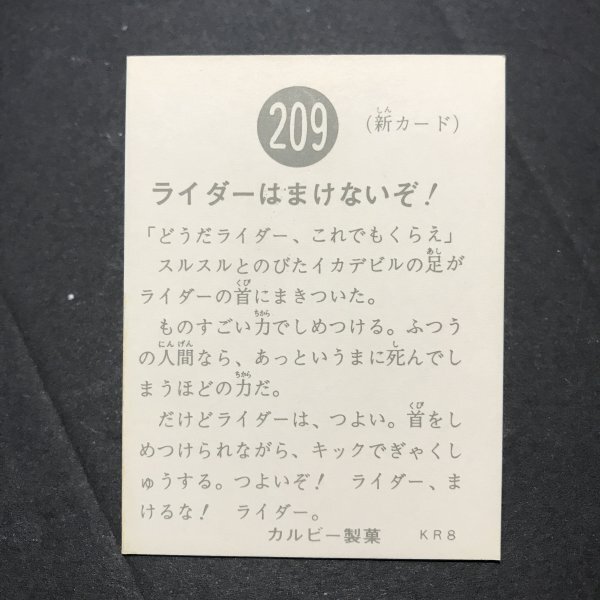 209
(新カード)
ライダーはまけないぞ！
「どうだライダー、これでもくらえ」
スルスルとのびたイカデビルの足が
ライダーの首にまきついた。
ものすごい力でしめつける。ふつう
の人間なら、あっというまに死んでし
まうほどの力だ。
だけどライダーは、つよい。首をし
めつけられながら、キックでぎゃくし
ゅうする。つよいぞ！　ライダー、ま
けるな！　ライダー。
カルビー製菓　KR8